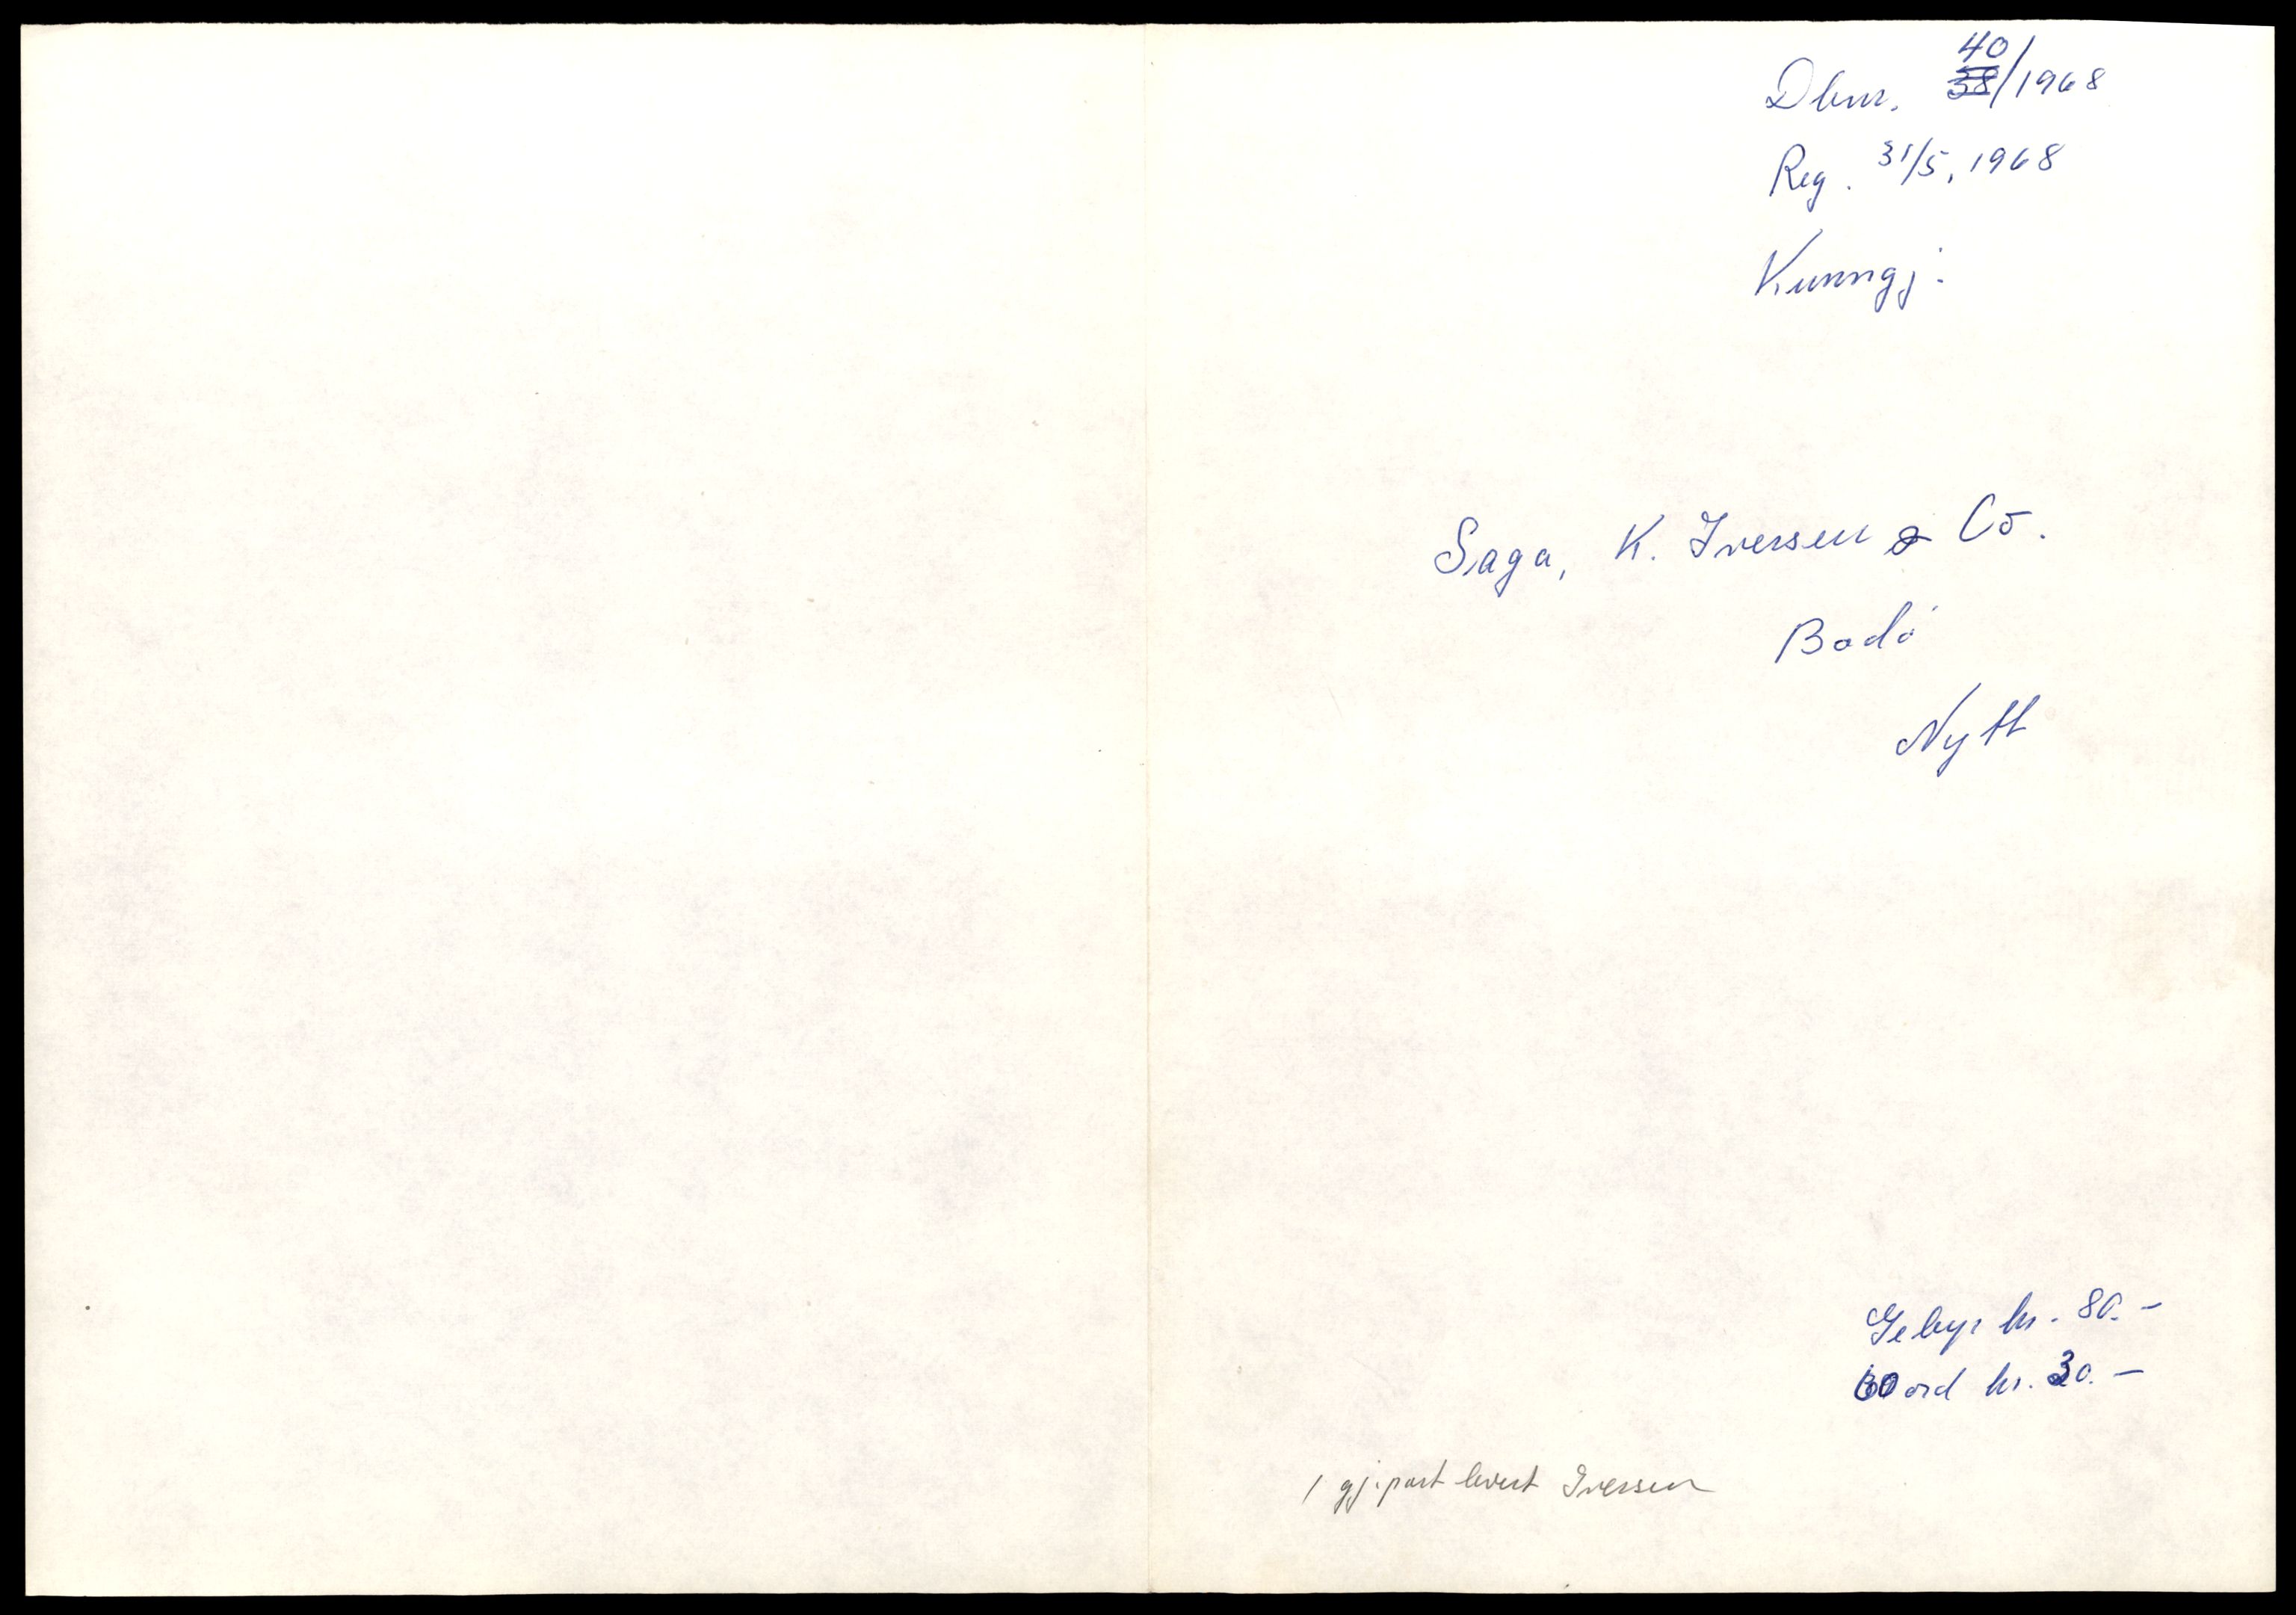 40
Dbnr. 38/1968
Reg. 31/5, 1968
Kunngj.
Saga, K. Iversen & Co.
Bodø
Nytt
Gebyr kr. 80.-
60 ord kr. 30.-
1 gj.part levert Iversen